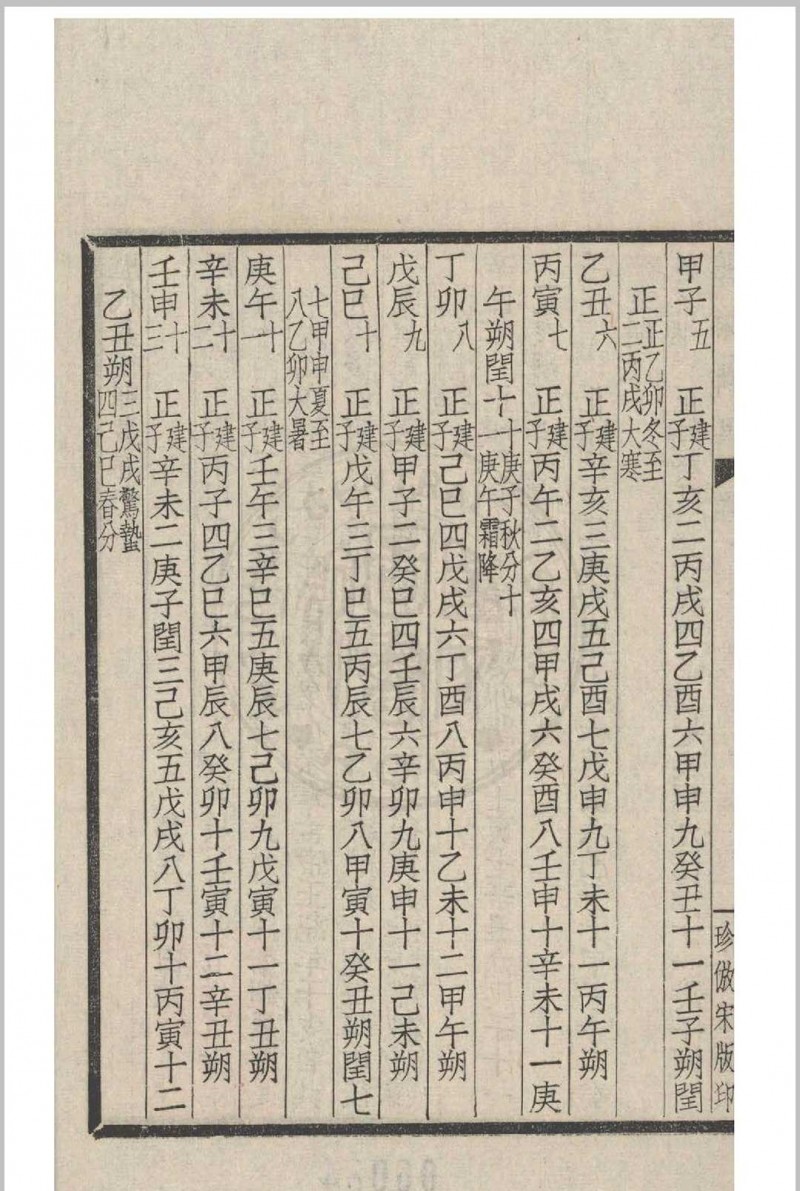 珍倣宋版印
甲子五 正建子丁亥二丙戌四乙酉六甲申九癸丑十一壬子朔閏
正正乙卯冬至二丙戌大寒
乙丑六 正建子辛亥三庚戌五己酉七戊申九丁未十一丙午朔
丙寅七 正建子丙午二乙亥四甲戌六癸酉八壬申十辛未十一庚
午朔閏十十庚子秋分十一庚午霜降
丁卯八 正建子己巳四戊戌六丁酉八丙申十乙未十二甲午朔
戊辰九 正建子甲子二癸巳四壬辰六辛卯九庚申十一己未朔
己巳十 正建子戊午三丁巳五丙辰七乙卯八甲寅十癸丑朔閏七
七甲申夏至八乙卯大暑
庚午十一 正建子壬午三辛巳五庚辰七己卯九戊寅十一丁丑朔
辛未十二 正建子丙子四乙巳六甲辰八癸卯十壬寅十二辛丑朔
壬申十三 正建子辛未二庚子閏三己亥五戊戌八丁卯十丙寅十二
乙丑朔三戊戌驚蟄四己巳春分